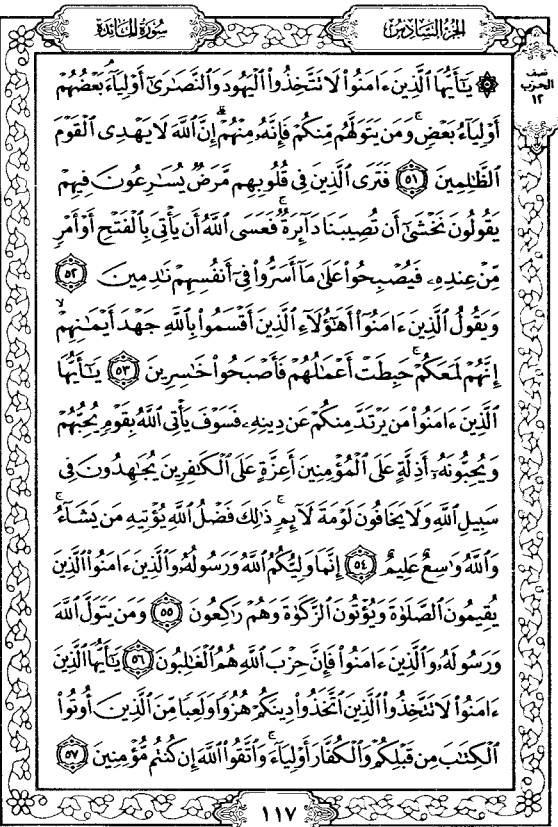 سُورَةُ المَائدة
الجزء السَّادسُ
نصف
الحزب
١٢
۞ يَٰٓأَيُّهَا ٱلَّذِينَ ءَامَنُواْ لَا تَتَّخِذُواْ ٱلۡيَهُودَ وَٱلنَّصَٰرَىٰٓ أَوۡلِيَآءَۘ بَعۡضُهُمۡ
أَوۡلِيَآءُ بَعۡضٖۚ وَمَن يَتَوَلَّهُم مِّنكُمۡ فَإِنَّهُۥ مِنۡهُمۡۗ إِنَّ ٱللَّهَ لَا يَهۡدِي ٱلۡقَوۡمَ
ٱلظَّٰلِمِينَ ٥١ فَتَرَى ٱلَّذِينَ فِي قُلُوبِهِم مَّرَضٞ يُسَٰرِعُونَ فِيهِمۡ
يَقُولُونَ نَخۡشَىٰٓ أَن تُصِيبَنَا دَآئِرَةٞۚ فَعَسَى ٱللَّهُ أَن يَأۡتِيَ بِٱلۡفَتۡحِ أَوۡ أَمۡرٖ
مِّنۡ عِندِهِۦ فَيُصۡبِحُواْ عَلَىٰ مَآ أَسَرُّواْ فِيٓ أَنفُسِهِمۡ نَٰدِمِينَ ٥٢
وَيَقُولُ ٱلَّذِينَ ءَامَنُوٓاْ أَهَٰٓؤُلَآءِ ٱلَّذِينَ أَقۡسَمُواْ بِٱللَّهِ جَهۡدَ أَيۡمَٰنِهِمۡۙ
إِنَّهُمۡ لَمَعَكُمۡۚ حَبِطَتۡ أَعۡمَٰلُهُمۡ فَأَصۡبَحُواْ خَٰسِرِينَ ٥٣ يَٰٓأَيُّهَا
ٱلَّذِينَ ءَامَنُواْ مَن يَرۡتَدَّ مِنكُمۡ عَن دِينِهِۦ فَسَوۡفَ يَأۡتِي ٱللَّهُ بِقَوۡمٖ يُحِبُّهُمۡ
وَيُحِبُّونَهُۥٓ أَذِلَّةٍ عَلَى ٱلۡمُؤۡمِنِينَ أَعِزَّةٍ عَلَى ٱلۡكَٰفِرِينَ يُجَٰهِدُونَ فِي
سَبِيلِ ٱللَّهِ وَلَا يَخَافُونَ لَوۡمَةَ لَآئِمٖۚ ذَٰلِكَ فَضۡلُ ٱللَّهِ يُؤۡتِيهِ مَن يَشَآءُۚ
وَٱللَّهُ وَٰسِعٌ عَلِيمٌ ٥٤ إِنَّمَا وَلِيُّكُمُ ٱللَّهُ وَرَسُولُهُۥ وَٱلَّذِينَ ءَامَنُواْ ٱلَّذِينَ
يُقِيمُونَ ٱلصَّلَوٰةَ وَيُؤۡتُونَ ٱلزَّكَوٰةَ وَهُمۡ رَٰكِعُونَ ٥٥ وَمَن يَتَوَلَّ ٱللَّهَ
وَرَسُولَهُۥ وَٱلَّذِينَ ءَامَنُواْ فَإِنَّ حِزۡبَ ٱللَّهِ هُمُ ٱلۡغَٰلِبُونَ ٥٦ يَٰٓأَيُّهَا ٱلَّذِينَ
ءَامَنُواْ لَا تَتَّخِذُواْ ٱلَّذِينَ ٱتَّخَذُواْ دِينَكُمۡ هُزُوٗا وَلَعِبٗا مِّنَ ٱلَّذِينَ أُوتُواْ
ٱلۡكِتَٰبَ مِن قَبۡلِكُمۡ وَٱلۡكُفَّارَ أَوۡلِيَآءَۚ وَٱتَّقُواْ ٱللَّهَ إِن كُنتُم مُّؤۡمِنِينَ ٥٧
١١٧